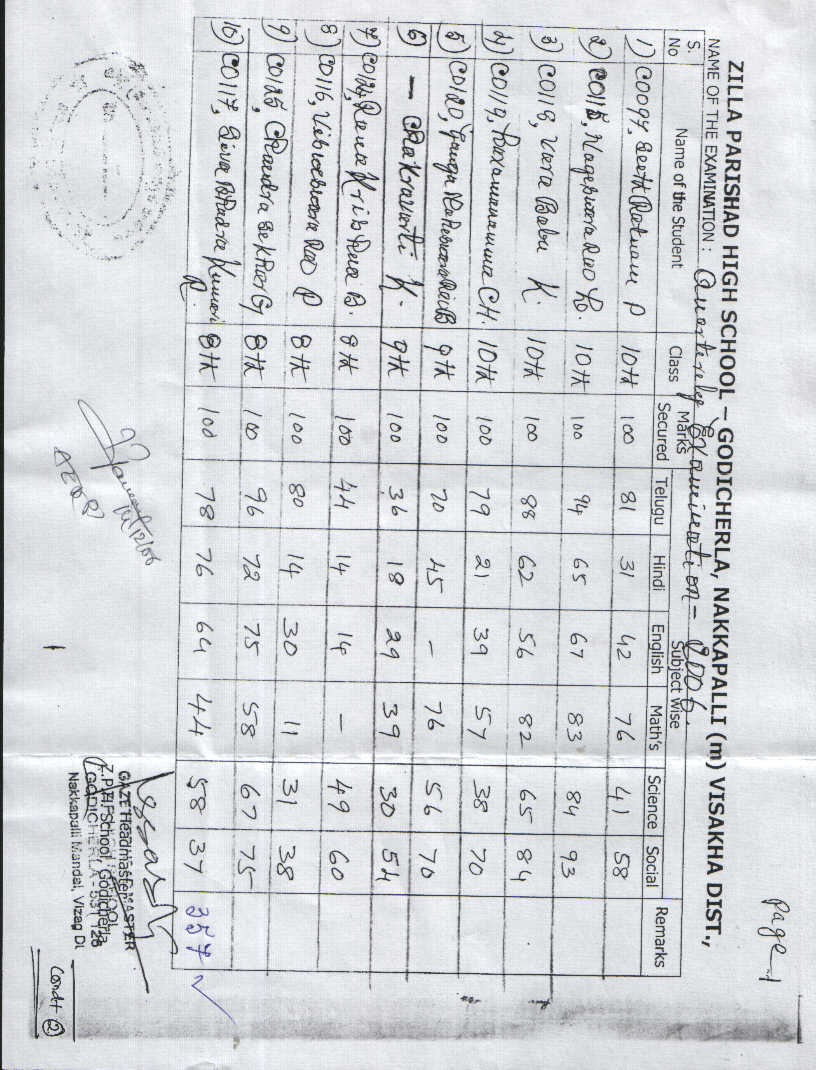 Page-1
ZILLA PARISHAD HIGH SCHOOL – GODICHERLA, NAKKAPALLI (m) VISAKHA DIST.,
NAME OF THE EXAMINATION : Quarterely Examination- 2006.
S. No Name of the Student Class Marks Secured Subject Wise Remarks
Telugu Hindi English Math's Science Social
1) C0097, Seeth Ratnam P 10th 100 81 31 42 76 41 58
2) C0115, Nageswara Rao 10th 100 94 65 67 83 84 93
3) C0118, Vara Babu K. 10th 100 88 62 56 82 65 84
4) C0119, CH. 10th 100 79 21 39 57 38 70
5) C0120, Ganga B 9th 100 70 45 - 76 56 70
6) — Chakravarti K. 9th 100 36 18 29 39 30 54
7) C0124, Rama Krishna B. 8th 100 44 14 14 - 49 60
8) C0116, Rao P 8th 100 80 14 30 11 31 38
9) C0125, Chandra Sekhar G 8th 100 96 72 75 58 67 75
10) C0117, Siva Kumari R. 8th 100 78 76 64 44 58 37 357 ✓
GAZE Headmaster
Z.P.H School, Godicherla
Nakkapalli Mandal, Vizag Dt
Contd ②